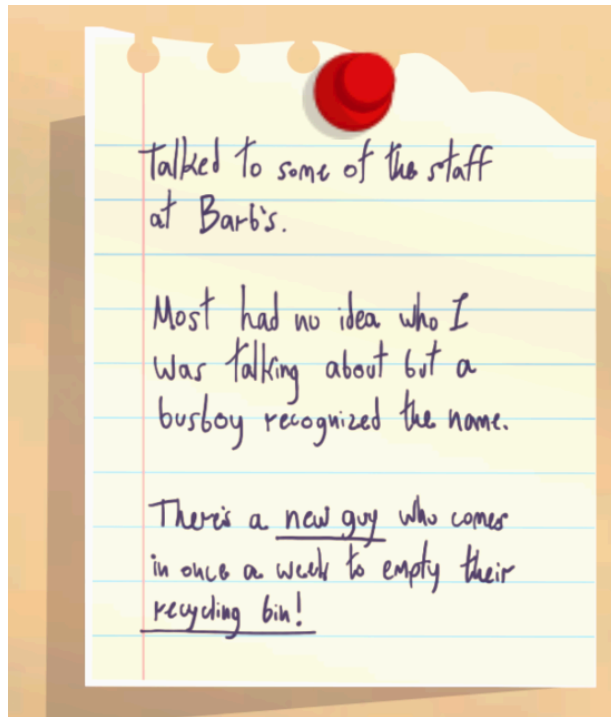 Talked to some of the staff
at Barb's.
Most had no idea who I
was talking about but a
busboy recognized the name.
There's a new guy who comes
in once a week to empty their
recycling bin!